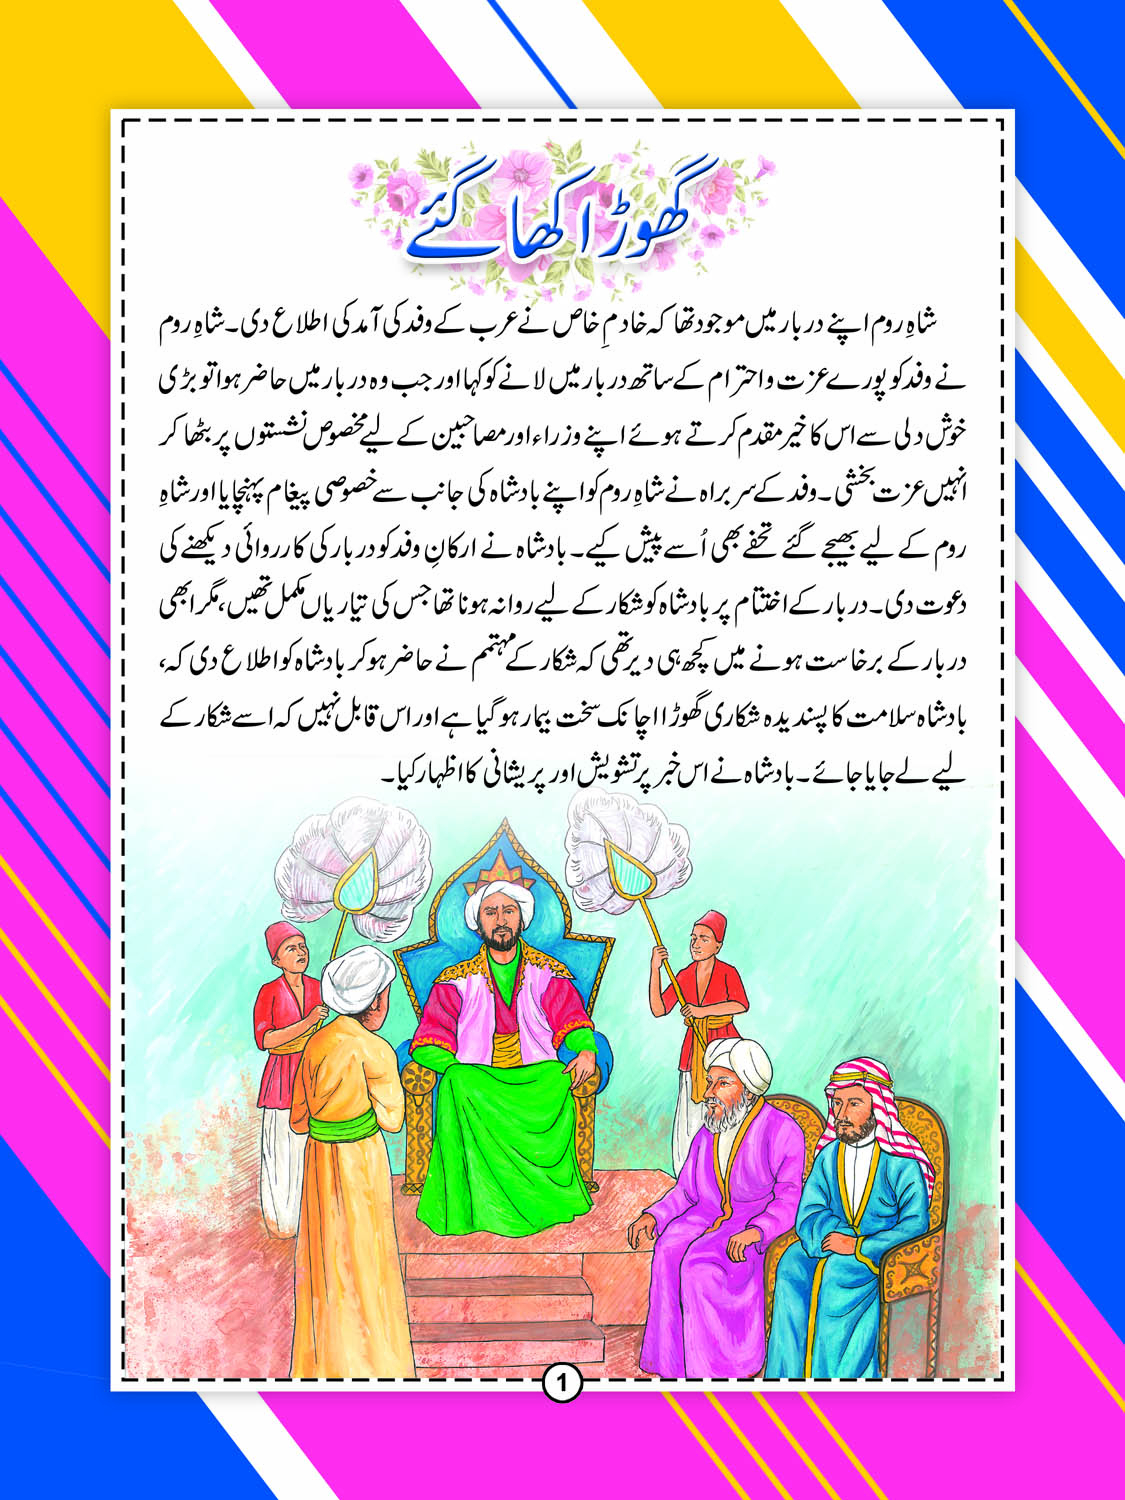 گھوڑا کھا گئے
شاہِ روم اپنے دربار میں موجود تھا کہ خادمِ خاص نے عرب کے وفد کی آمد کی اطلاع دی۔ شاہِ روم
نے وفد کو پورے عزت و احترام کے ساتھ دربار میں لانے کو کہا اور جب وہ دربار میں حاضر ہوا تو بڑی
خوش دلی سے اس کا خیر مقدم کرتے ہوئے اپنے وزراء اور مصاحبین کے لیے مخصوص نشستوں پر بٹھا کر
انہیں عزت بخشی۔ وفد کے سربراہ نے شاہِ روم کو اپنے بادشاہ کی جانب سے خصوصی پیغام پہنچایا اور شاہِ
روم کے لیے بھیجے گئے تحفے بھی اُسے پیش کیے۔ بادشاہ نے ارکانِ وفد کو دربار کی کارروائی دیکھنے کی
دعوت دی۔ دربار کے اختتام پر بادشاہ کو شکار کے لیے روانہ ہونا تھا جس کی تیاریاں مکمل تھیں، مگر ابھی
دربار کے برخاست ہونے میں کچھ ہی دیر تھی کہ شکار کے مہتمم نے حاضر ہو کر بادشاہ کو اطلاع دی کہ،
بادشاہ سلامت کا پسندیدہ شکاری گھوڑا اچانک سخت بیمار ہو گیا ہے اور اس قابل نہیں کہ اسے شکار کے
لیے لے جایا جائے۔ بادشاہ نے اس خبر پر تشویش اور پریشانی کا اظہار کیا۔
1